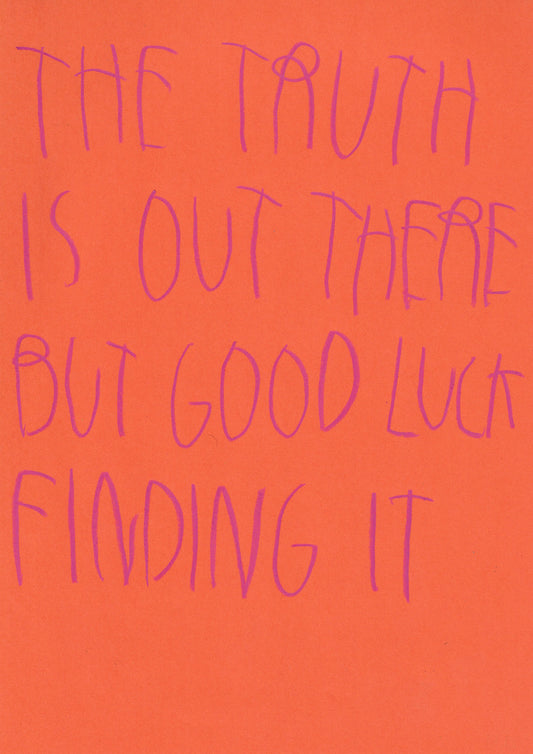 THE TRUTH
IS OUT THERE
BUT GOOD LUCK
FINDING IT